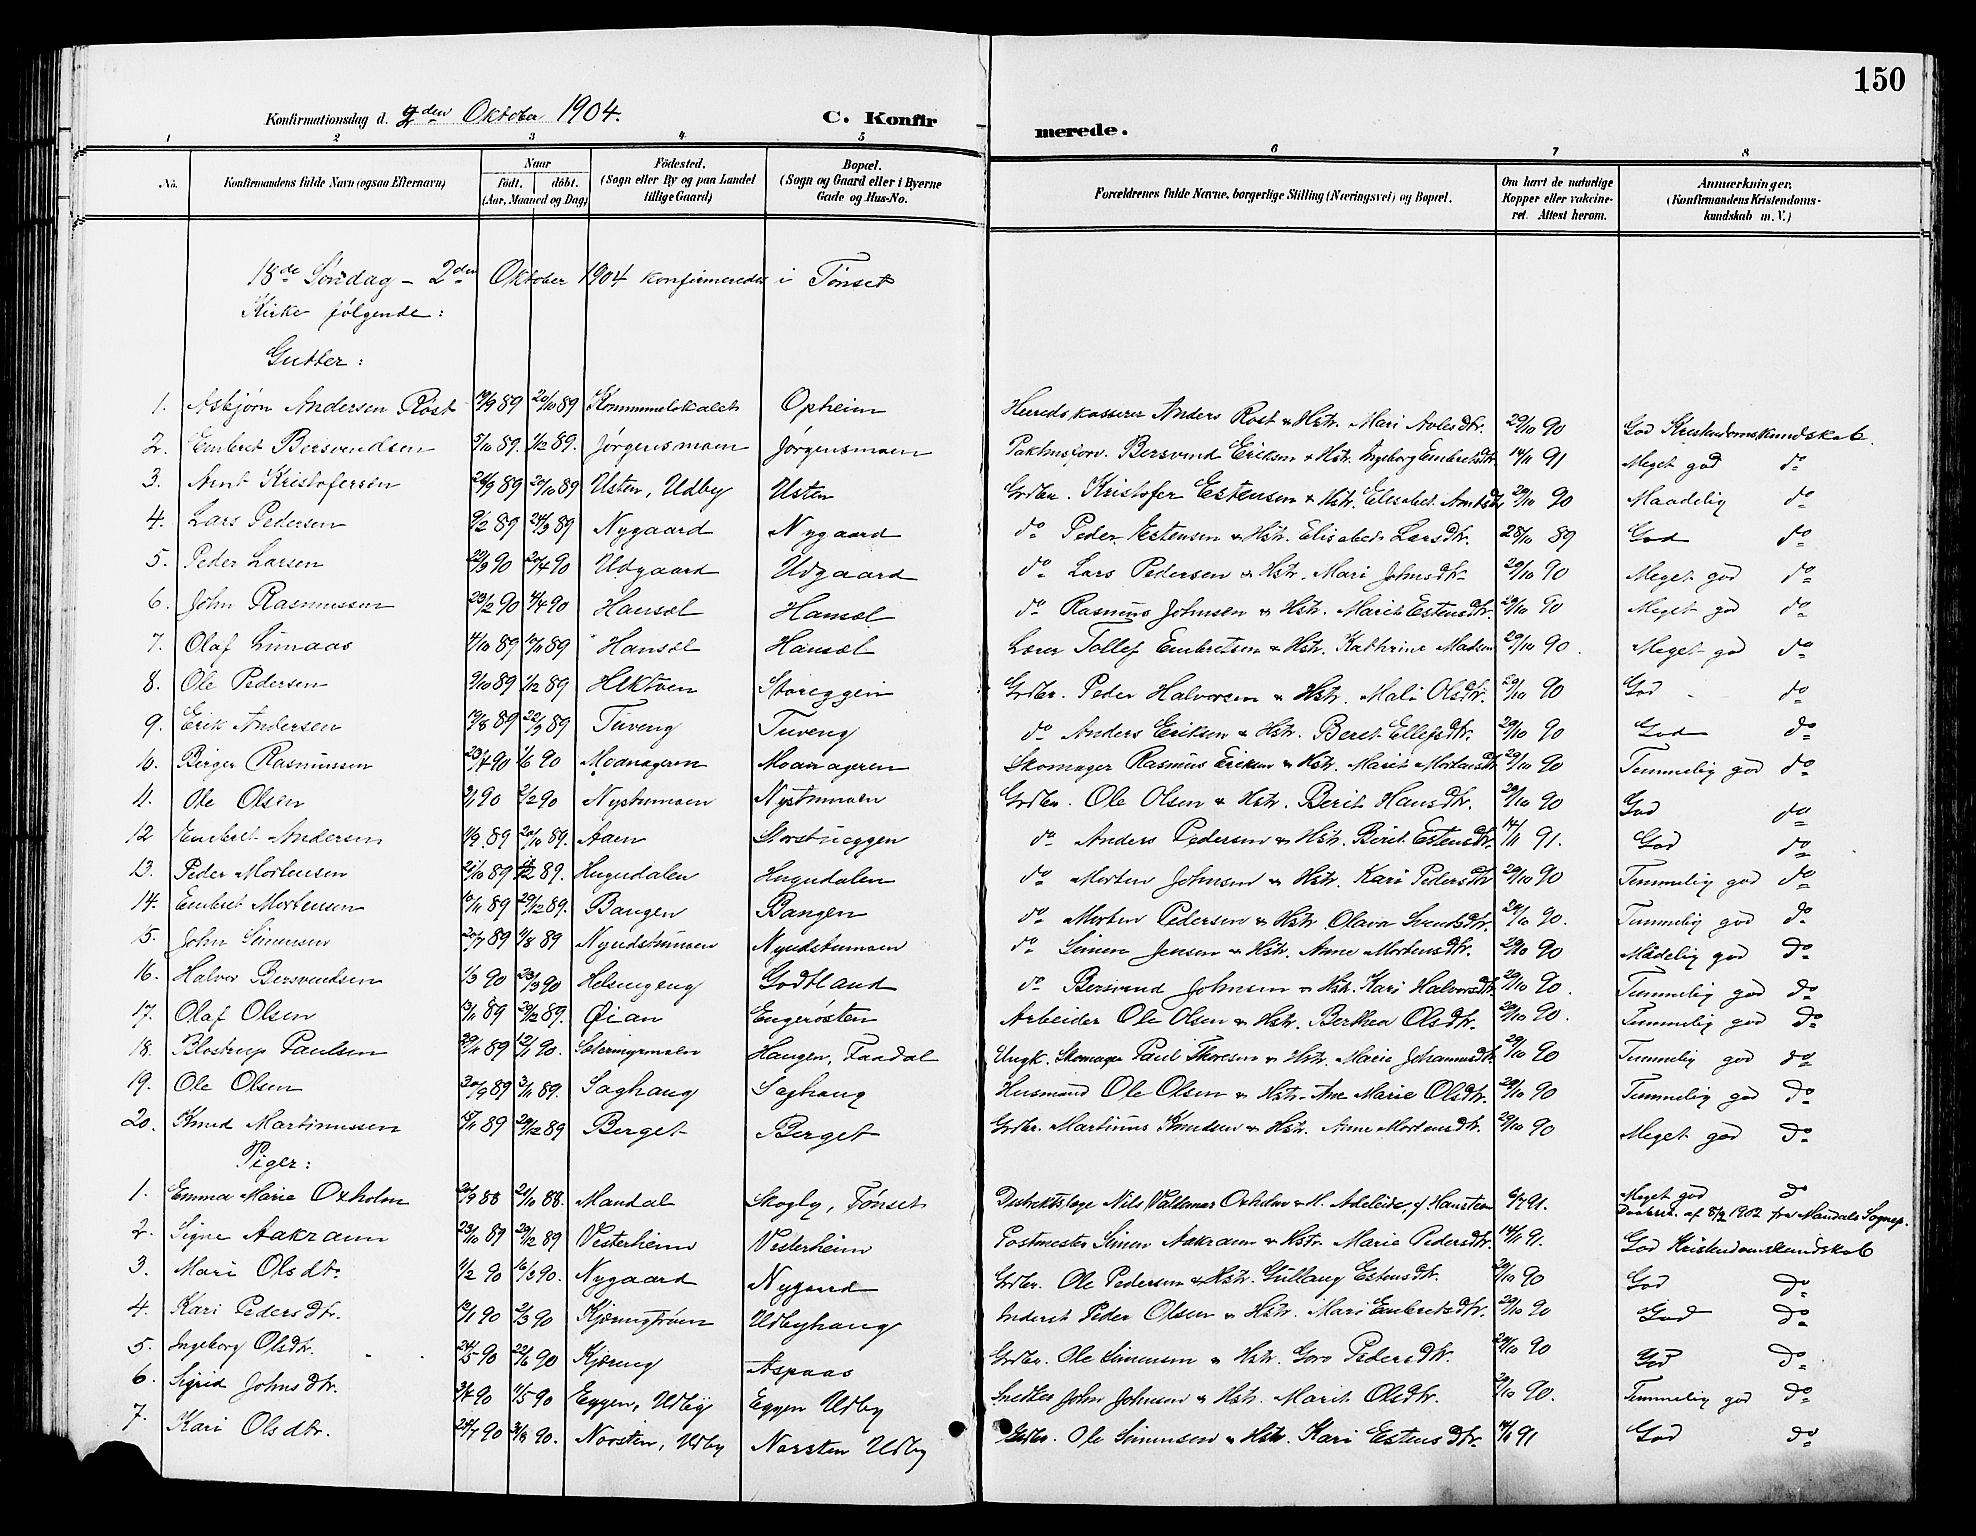 150
Konfirmationsdag d. 2den Oktober 1904. C. Konfirmerede.
1 2 3 4 5 6 7 8
No. Konfirmandens fulde Navn (ogsaa Efternavn) Naar födt. döbt. (Aar, Maaned og Dag) Födested. (Sogn eller By og paa Landet tillige Gaard) Bopæl. (Sogn og Gaard eller i Byerne Gade og Hus-No. Forældrenes fulde Navne, borgerlige Stilling (Næringsvei) og Bopæl. Om havt de naturlige Kopper eller vakcineret. Attest herom. Anmærkninger. (Konfirmandens Kristendomskundskab m. V.)
18de Søndag - 2den Oktober 1904 konfirmeredes i Tønset
Kirke følgende:
Gutter:
1. Asbjørn Andersen Røst 19/9 89 20/10 89 Kommunelokalet Opheim Herredskasserer Anders Røst & Hstr. Mari Avlesdtr. 29/10 90 God Kristendomskundskab.
2. Embret Bersvendsen 5/10 89 1/12 89. Jørgensmoen Jørgensmoen Pakhusforv. Bersvend Eriksen & Hstr. Ingeborg Embretsdtr. 14/11 91 Meget god do
3. Arnt Kristofersen 26/9 89 20/10 89 Usten, Udby Usten Grdbr. Kristofer Estensen & Hstr. Elisabet Arntsdtr 29/10 90 Maadelig do
4. Lars Pedersen 9/2 89 24/3 89 Nygaard Nygaard do Peder Estensen & Hstr. Elisabeth Larsdtr. 28/10 89 God do
5. Peder Larsen 22/3 90 20/4 90 Udgaard Udgaard do Lars Pedersen & Hstr. Mari Johnsdtr 29/10 90 Meget god do
6. John Rasmussen 23/2 90 4/4 90 Hansæl Hansæl do Rasmus Johnsen & Hstr. Marit Estensdtr. 29/10 90 Meget god do
7. Olaf Lunaas 4/10 89 10/11 89 Hansæl Hansæl Lærer Tollef Embretsen & Hstr. Kathrine Madsen 29/10 90. Meget god do
8. Ole Pedersen 9/10 89 1/12 89 Hektoen Storeggen Grdbr. Peder Halvorsen & Hstr. Mali Olsdtr. 29/10 90 God do
9. Erik Andersen 19/8 89 22/9 89 Tuveng Tuveng do Anders Eriksen & Hstr. Beret Ellefsdtr. 29/10 90 God do
10. Birger Rasmussen 23/4 90 1/6 90 Moanageren Moanageren Skomager Rasmus Eriksen & Hstr. Marit Mortensdtr 29/10 90 Temmelig god do
11. Ole Olsen 3/1 90 2/2 90 Nystumoen Nystumoen Grdbr. Ole Olsen & Hstr. Berit Hansdtr. 29/10 90 God do
12 Embret Andersen 11/9 89 20/10 89. Aaen Storstueggen do Anders Pedersen & Hstr. Berit Estensdtr. 14/11 91. God do
13. Peder Mortensen 21/10 89 1/12 89. Hugudalen Hugudalen do Morten Johnsen & Hstr. Kari Pedersdtr 29/10 90 Temmelig god do
14. Embret Mortensen 10/11 89 29/12 89. Bangen Bangen do Morten Pedersen & Hstr. Olava Svendsdtr. 29/10 90. Temmelig god do
15. John Simensen 20/7 89 11/8 89 Nyudstumoen Nyudstumoen do Simen Jensen & Hstr. Anne Mortensdtr. 29/10 90 Mådelig god do
16. Halvor Bersvendsen 1/3 90 23/3 90 Helsingeng Godtland do Bersvend Johnsen & Hstr. Kari Halvorsdtr. 29/10 90. Temmelig god do
17. Olaf Olsen 13/11 89 29/12 89. Øian Engerøsten Arbeider Ole Olsen & Hstr. Berthea Olsdtr. 29/10 90. Temmelig god do
18. Blostrup Paulsen 29/11 89 12/1 90. Sætermyrmoen Haugen, Faadal Ungk. Skomager Paul Thoresen & Hstr. Marie Johannesdtr. 29/10 90 Temmelig god do
19. Ole Olsen 30/9 89 3/11 89. Saghaug Saghaug Husmand Ole Olsen & Hstr. Ane Marie Olsdtr. 29/10 90 Temmelig god do
20. Knud Martinussen 15/11 89 29/12 89 Berget Berget Grdbr. Martinus Knudsen & Hstr. Anne Mortensdtr. 29/10 90 Meget god do
Piger:
1. Emma Marie Oxholm 20/9 88 21/10 88. Mandal Skogly, Tønset Distriktslæge Nils Valdemar Oxholm & H. Adeleide, f. Hansteen 6/7 91. Meget god do
Daabsat. af 8/2 1902 fra Mandals Sognep.
2. Signe Aakrann 23/10 89 29/12 89 Vesterheim Vesterheim Postmester Simen Aakrann & Hstr. Marie Pedersdtr. 14/11 91. God Kristendomskundskab
3. Mari Olsdtr. 11/2 90 16/3 90. Nygaard Nygaard Grdbr. Ole Pedersen & Hstr. Gullaug Estensdtr. 29/10 90 God do
4. Kari Pedersdtr. 19/1 90 2/3 90 Kjærngtrøen Udbyhaug Inderst Peder Olsen & Hstr. Mari Embretsdtr. 29/10 90 God do
5. Ingeborg Olsdtr. 24/5 90 22/6 90 Kjærng Aspaas Grdbr. Ole Simensen & Hstr. Goro Pedersdtr. 29/10 90 God do
6. Sigrid Johnsdtr. 3/4 90 11/5 90 Eggen, Udby Eggen Udby Snedker John Johnsen & Hstr. Marit Olsdtr. 29/10 90. Temmelig god do
7. Kari Olsdtr. 24/7 90 31/8 90. Norsten, Udby Norsten Udby Grdbr. Ole Simensen & Hstr. Kari Estensdtr. 14/11 91 God do